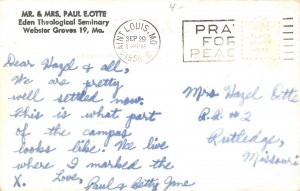 MR. & MRS. PAUL E. OTTE
Eden Theological Seminary
Webster Groves 19, Mo.
4-
SAINT LOUIS, MO.
SEP 29
1956
PRAY
FOR
PEACE
Dear Hazel & all,
We are pretty
well settled now.
This is what part
of the campus
looks like. We live
where I marked the
X. Love,
Paul & Betty Jane
Mrs Hazel Otte
R.R. #2
Rutledge,
Missouri